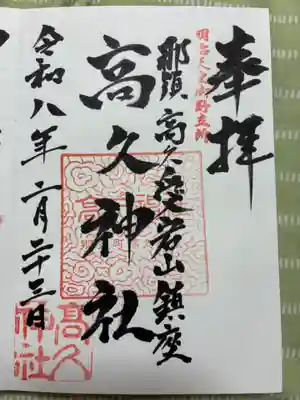 奉拝
明治天皇御野立所
那須高久愛宕山鎮座
高久神社
令和八年二月二十三日
高久
神社